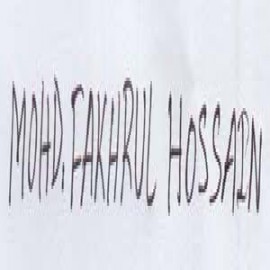 MOHD. FAKHRUL HOSSAIN